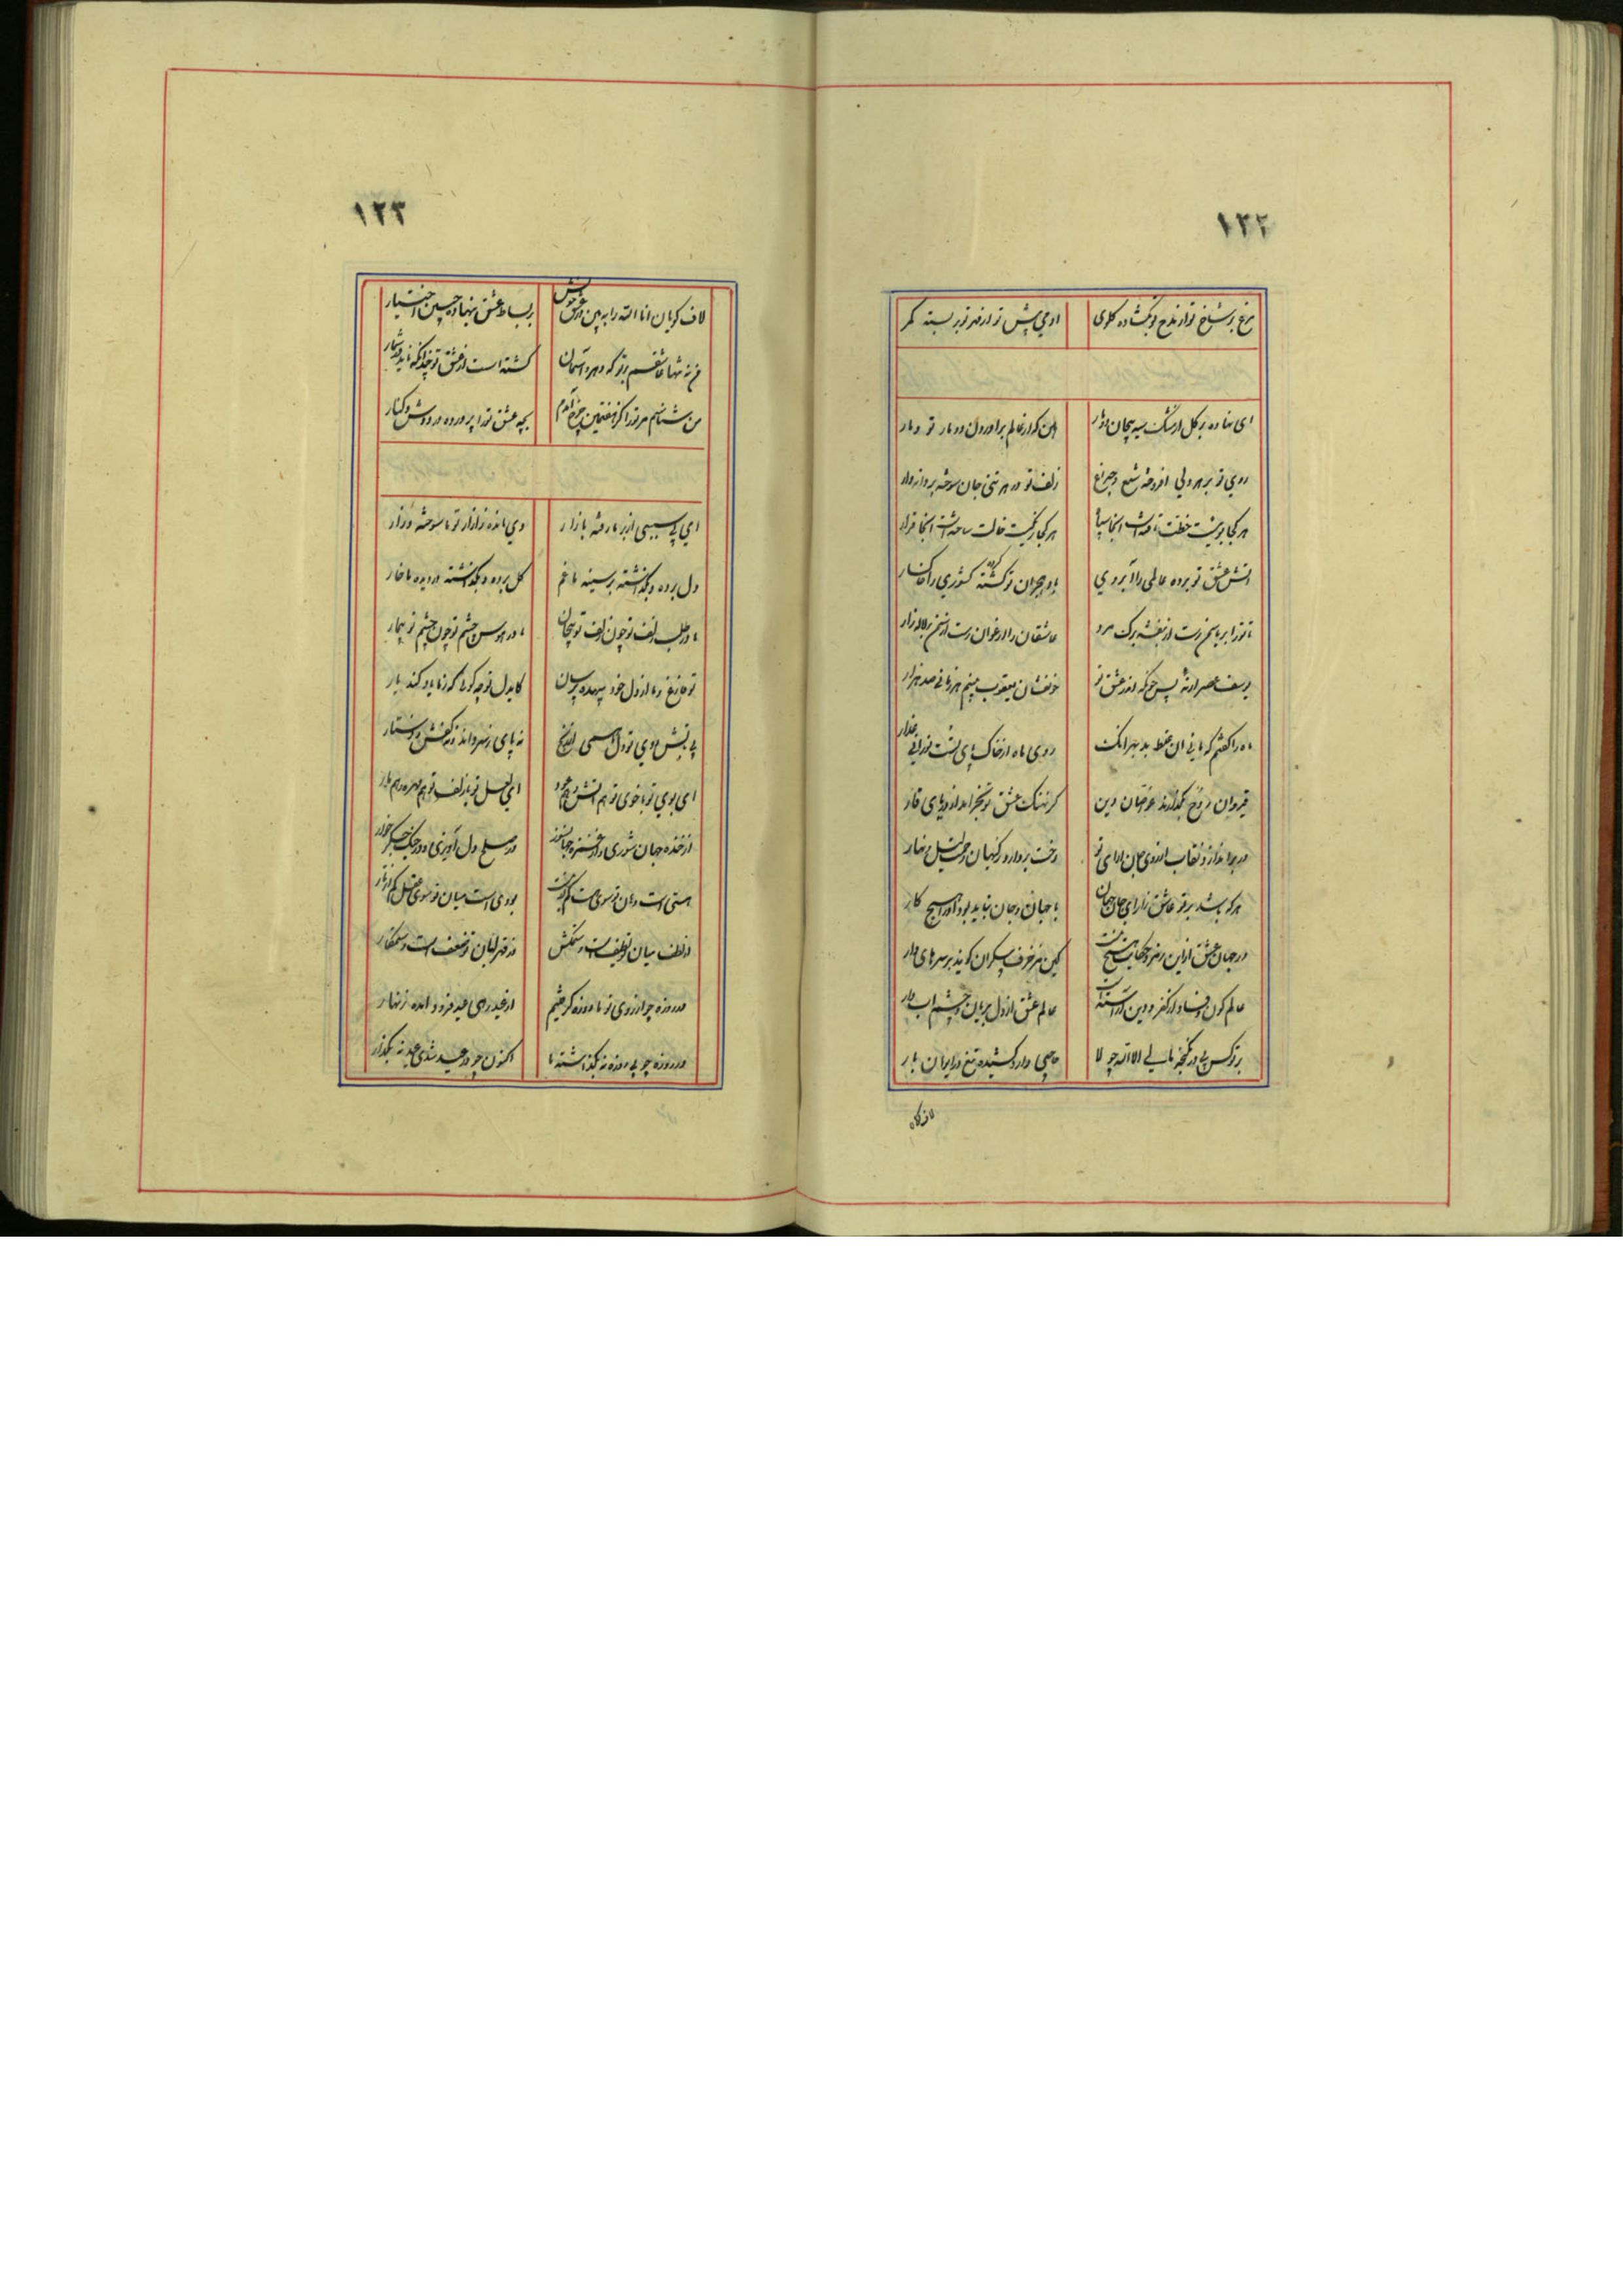 ۱۲۲
مرغ بر شاخ تو از مدح تو بگشاده گلوی
ادمی پیش تو از مهر تو بر بسته کمر
ای نهاده بر گل از مشک سیه پیچان دو مار
هین که از عالم براورد ان دو مار تو دمار
روی تو بر هر دلی افروخته شمع و چراغ
زلف تو در هر تنی جان سوخته پروانه وار
هر کجا بویست خطت تاخته است انجا سپاه
هر کجا رنگیست خالت ساخته است انجا قرار
اتش عشق تو برده عالمی را آبروی
باد هجران تو گشته کشوری را خاکسار
تا ترا بر یاسمن رست از بنفشه برگ مورد
عاشقان را ارغوان رست از سمن بر لاله زار
یوسف عصر ار نه پس چونکه اندر عشق تو
خونفشان یعقوب بینم هر زمانی صد هزار
ماه را گفتم که
روی ماه از خاک پای تست
قیروان عشق بگذارند غواصان دین
گر نهنگ عشق تو بخرامد از دریای قار
در براندازد نقاب از روی جان ارای تو
رخت بردارد ز کیهان زحمت لیل و نهار
هر که باشد بر تو عاشق زار ای جان جهان
با جهان و جان نباید بود او را هیچ کار
در جهان عشق ازین رمز و حکایت هیچ نیست
کین مزخرف پیکران گویند بر سرهای دار
عالم کون و فساد از کفر و دین آراستست
عالم عشق از دل بریان و چشم اب دار
بر در کس
حاجبی دارد کشیده تیغ در ایوان بار
لاف گویان
۱۲۳
لاف گویان انا الله را ببین در عشق خویش
بر بساط عشق بنهاده جبین اختیار
من نه تنها عاشقم بر تو که در هر آسمان
گشته است از عشق تو چندانکه ناید در شمار
من شناسم مر ترا کز هفتمین چرخ آمدم
بچه عشق ترا پرورده در دوش و کنار
ای بی سببی از بر ما رفته بازار
وی مانده ز ازار تو ما سوخته و زار
دل برده و بگذاشته بر سینه ما غم
گل برده و بگذاشته در دیده ما خار
ما در طلب زلف تو چون زلف تو پیچان
ما در هوس چشم تو چون چشم تو بیمار
تو فارغ و ما از دل خود بیهده پرسان
کای دل تو چه گوئی که ز ما یاد کند یار
بی تابش روی تو دل ما همی از رنج
نه پای ز سر داند و نه کفش ز دستار
ای بوی تو با خوی تو هم اتش و هم عود
ای لعل تو با زلف تو هم مهره و هم مار
از خنده جهان شوری و از غمزه جهانسوز
در صلح دل آویزی و در جنگ جگر خوار
هستی است دهان تو سوی
بودی است میان تو سوی عقل کم از تار
از لطف میان تو لطیف است و ستمکش
وز قهر لبان تو ضعیف است و ستمکار
در روزه چو از روی تو ما روزه گرفتیم
از عید رهی عید فرود امده زنهار
در روزه چو بی روزه نه بگذاشته ما
اکنون چو در عید شدی عید نه بگذار